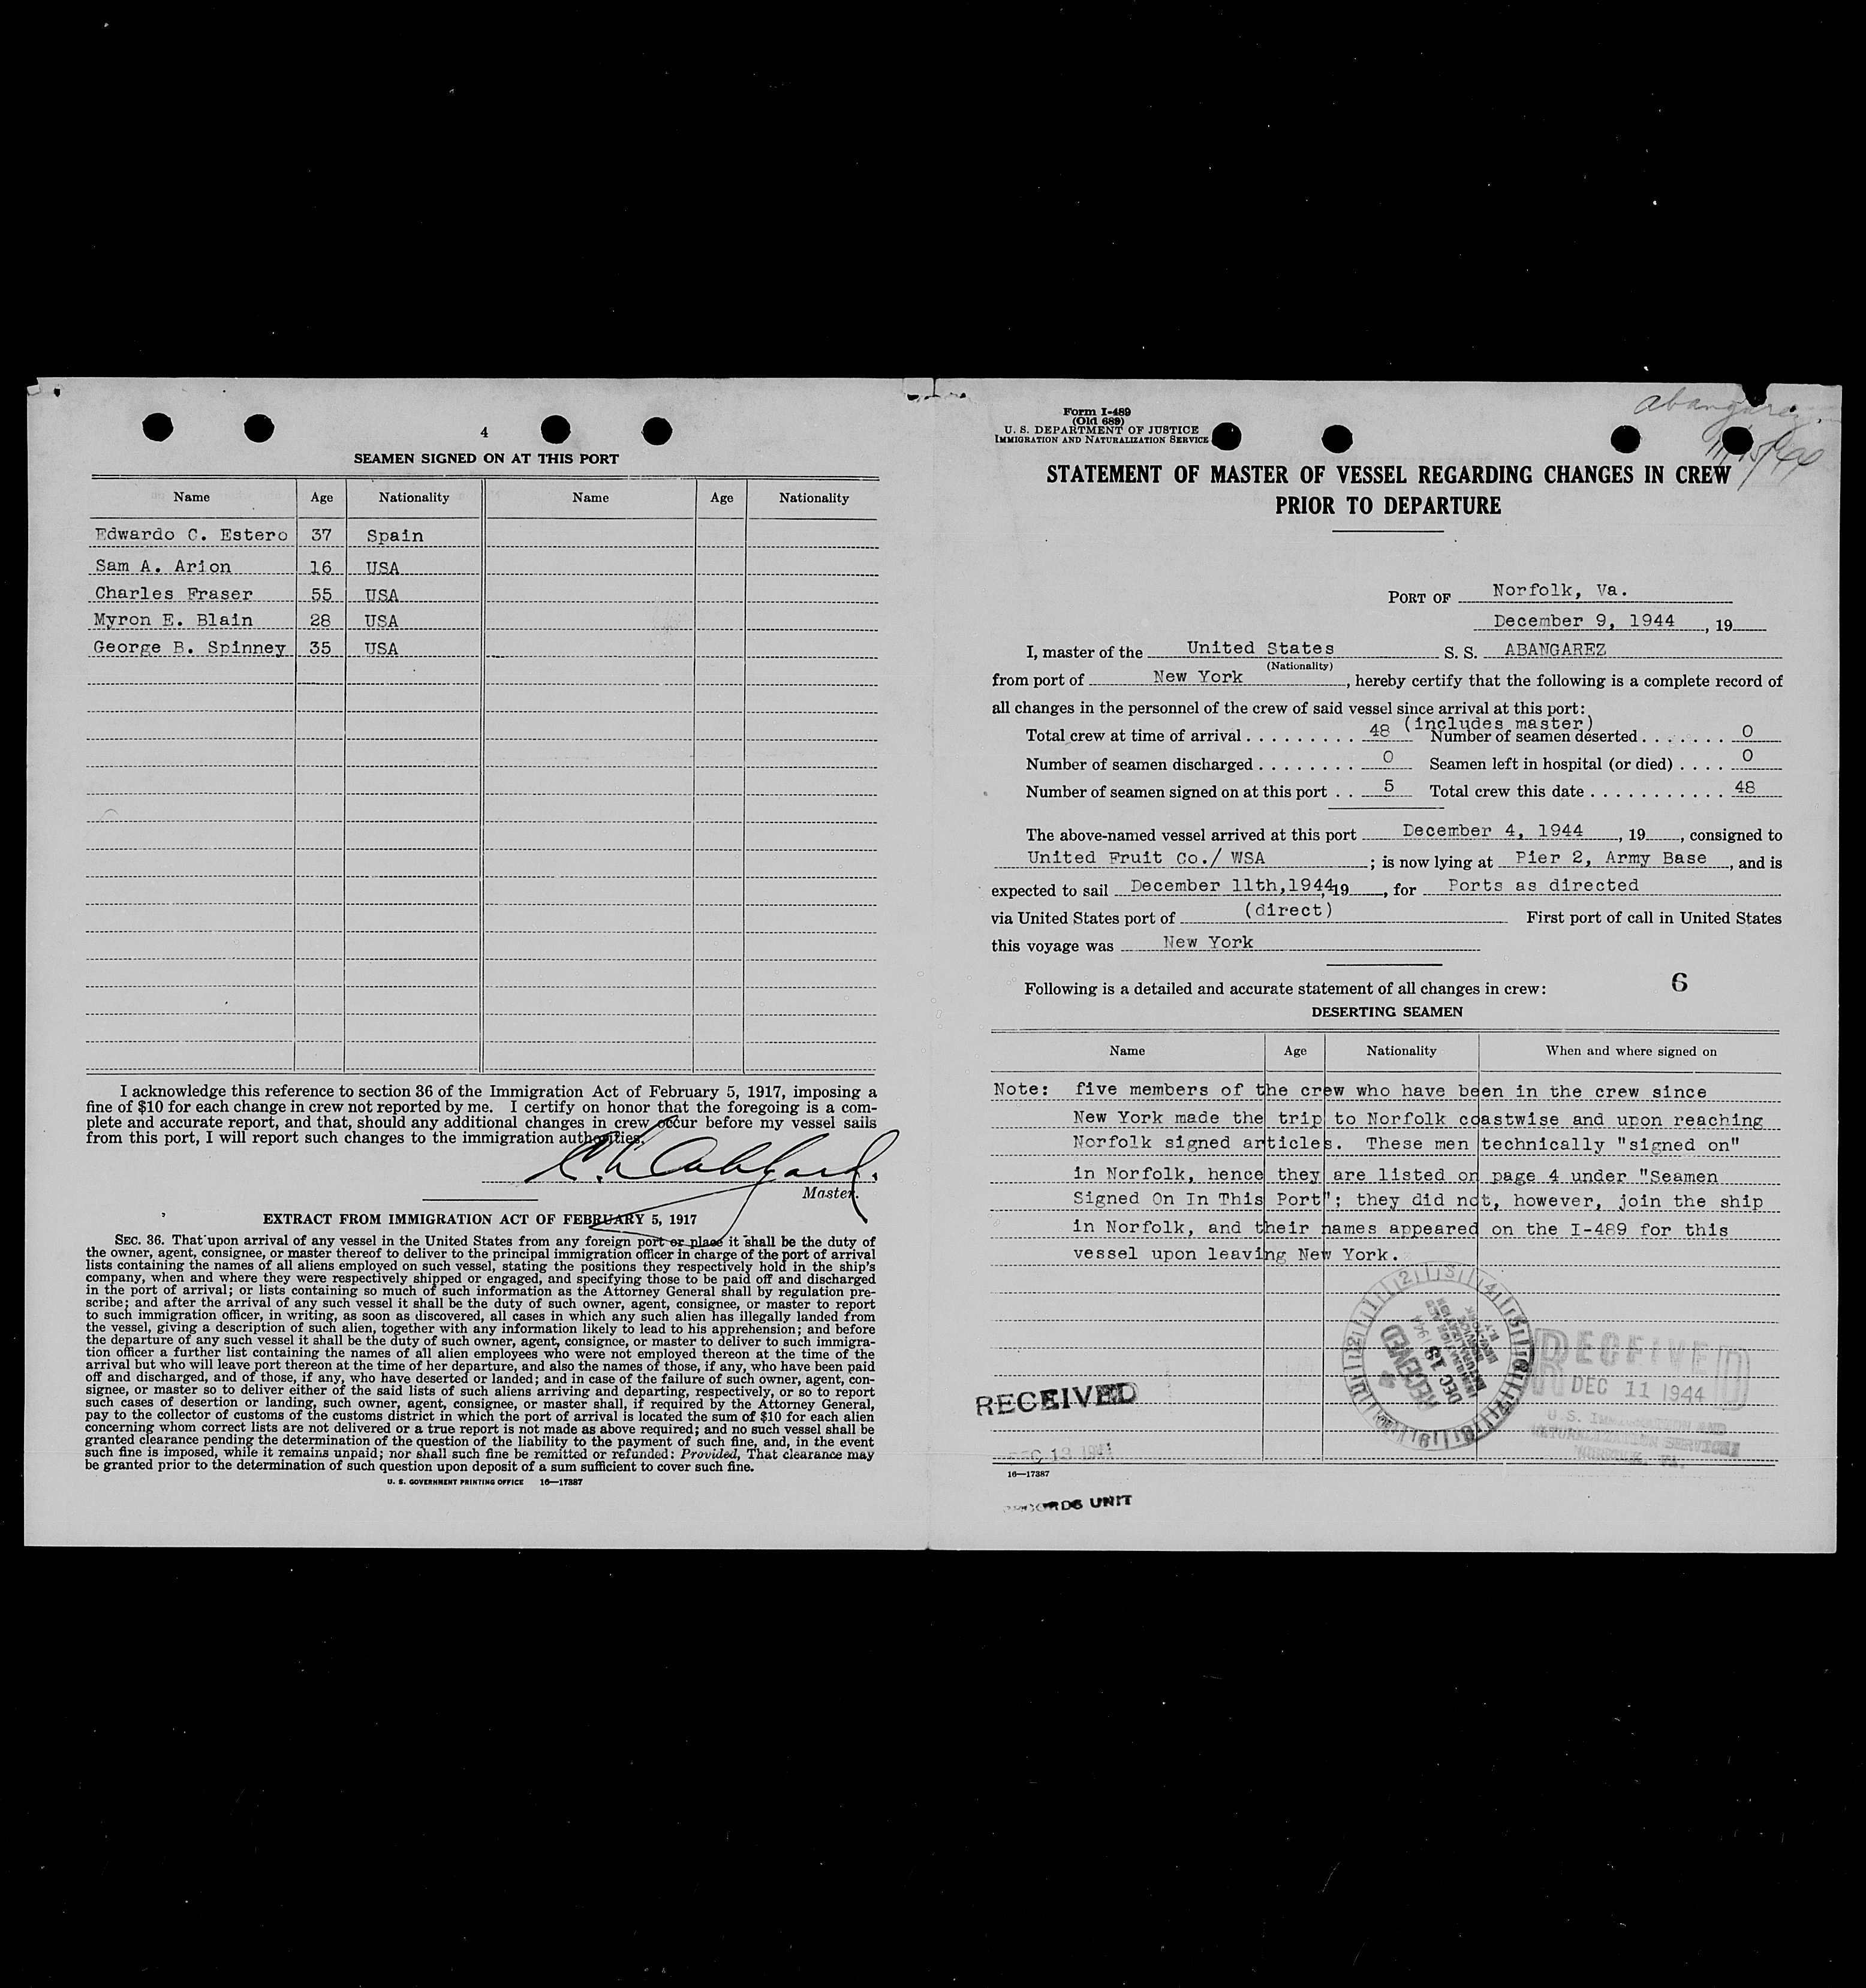 4
SEAMEN SIGNED ON AT THIS PORT
Name Age Nationality Name Age Nationality
Edwardo C. Estero 37 Spain
Sam A. Arion 16 USA
Charles Fraser 55 USA
Myron E. Blain 28 USA
George B. Spinney 35 USA
I acknowledge this reference to section 36 of the Immigration Act of February 5, 1917, imposing a
fine of $10 for each change in crew not reported by me. I certify on honor that the foregoing is a com-
plete and accurate report, and that, should any additional changes in crew occur before my vessel sails
from this port, I will report such changes to the immigration authorities.
Master.
EXTRACT FROM IMMIGRATION ACT OF FEBRUARY 5, 1917
SEC. 36. That upon arrival of any vessel in the United States from any foreign port or place it shall be the duty of
the owner, agent, consignee, or master thereof to deliver to the principal immigration officer in charge of the port of arrival
lists containing the names of all aliens employed on such vessel, stating the positions they respectively hold in the ship's
company, when and where they were respectively shipped or engaged, and specifying those to be paid off and discharged
in the port of arrival; or lists containing so much of such information as the Attorney General shall by regulation pre-
scribe; and after the arrival of any such vessel it shall be the duty of such owner, agent, consignee, or master to report
to such immigration officer, in writing, as soon as discovered, all cases in which any such alien has illegally landed from
the vessel, giving a description of such alien, together with any information likely to lead to his apprehension; and before
the departure of any such vessel it shall be the duty of such owner, agent, consignee, or master to deliver to such immigra-
tion officer a further list containing the names of all alien employees who were not employed thereon at the time of the
arrival but who will leave port thereon at the time of her departure, and also the names of those, if any, who have been paid
off and discharged, and of those, if any, who have deserted or landed; and in case of the failure of such owner, agent, con-
signee, or master so to deliver either of the said lists of such aliens arriving and departing, respectively, or so to report
such cases of desertion or landing, such owner, agent, consignee, or master shall, if required by the Attorney General,
pay to the collector of customs of the customs district in which the port of arrival is located the sum of $10 for each alien
concerning whom correct lists are not delivered or a true report is not made as above required; and no such vessel shall be
granted clearance pending the determination of the question of the liability to the payment of such fine, and, in the event
such fine is imposed, while it remains unpaid; nor shall such fine be remitted or refunded: Provided, That clearance may
be granted prior to the determination of such question upon deposit of a sum sufficient to cover such fine.
U. S. GOVERNMENT PRINTING OFFICE 16—17387
Abangarez
Form I-489
(Old 689)
U. S. DEPARTMENT OF JUSTICE
IMMIGRATION AND NATURALIZATION SERVICE
STATEMENT OF MASTER OF VESSEL REGARDING CHANGES IN CREW
PRIOR TO DEPARTURE
PORT OF Norfolk, Va.
December 9, 1944, 19
I, master of the United States S. S. ABANGAREZ
(Nationality)
from port of New York, hereby certify that the following is a complete record of
all changes in the personnel of the crew of said vessel since arrival at this port:
Total crew at time of arrival . . . . . . . . . 48 (includes master) Number of seamen deserted . . . . . . . 0
Number of seamen discharged . . . . . . . . 0 Seamen left in hospital (or died) . . . . 0
Number of seamen signed on at this port . . 5 Total crew this date . . . . . . . . . . . 48
The above-named vessel arrived at this port December 4, 1944, 19, consigned to
United Fruit Co./ WSA; is now lying at Pier 2, Army Base, and is
expected to sail December 11th,1944,19, for Ports as directed
via United States port of (direct) First port of call in United States
this voyage was New York
Following is a detailed and accurate statement of all changes in crew: 6
DESERTING SEAMEN
Name Age Nationality When and where signed on
Note: five members of the crew who have been in the crew since
New York made the trip to Norfolk coastwise and upon reaching
Norfolk signed articles. These men technically "signed on"
in Norfolk, hence they are listed on page 4 under "Seamen
Signed On In This Port"; they did not, however, join the ship
in Norfolk, and their names appeared on the I-489 for this
vessel upon leaving New York.
RECEIVED
DEC 11 1944
U.S. IMMIGRATION AND
NATURALIZATION SERVICE
NORFOLK, VA.
RECEIVED
DEC 13 1944
RECORDS UNIT
16—17387